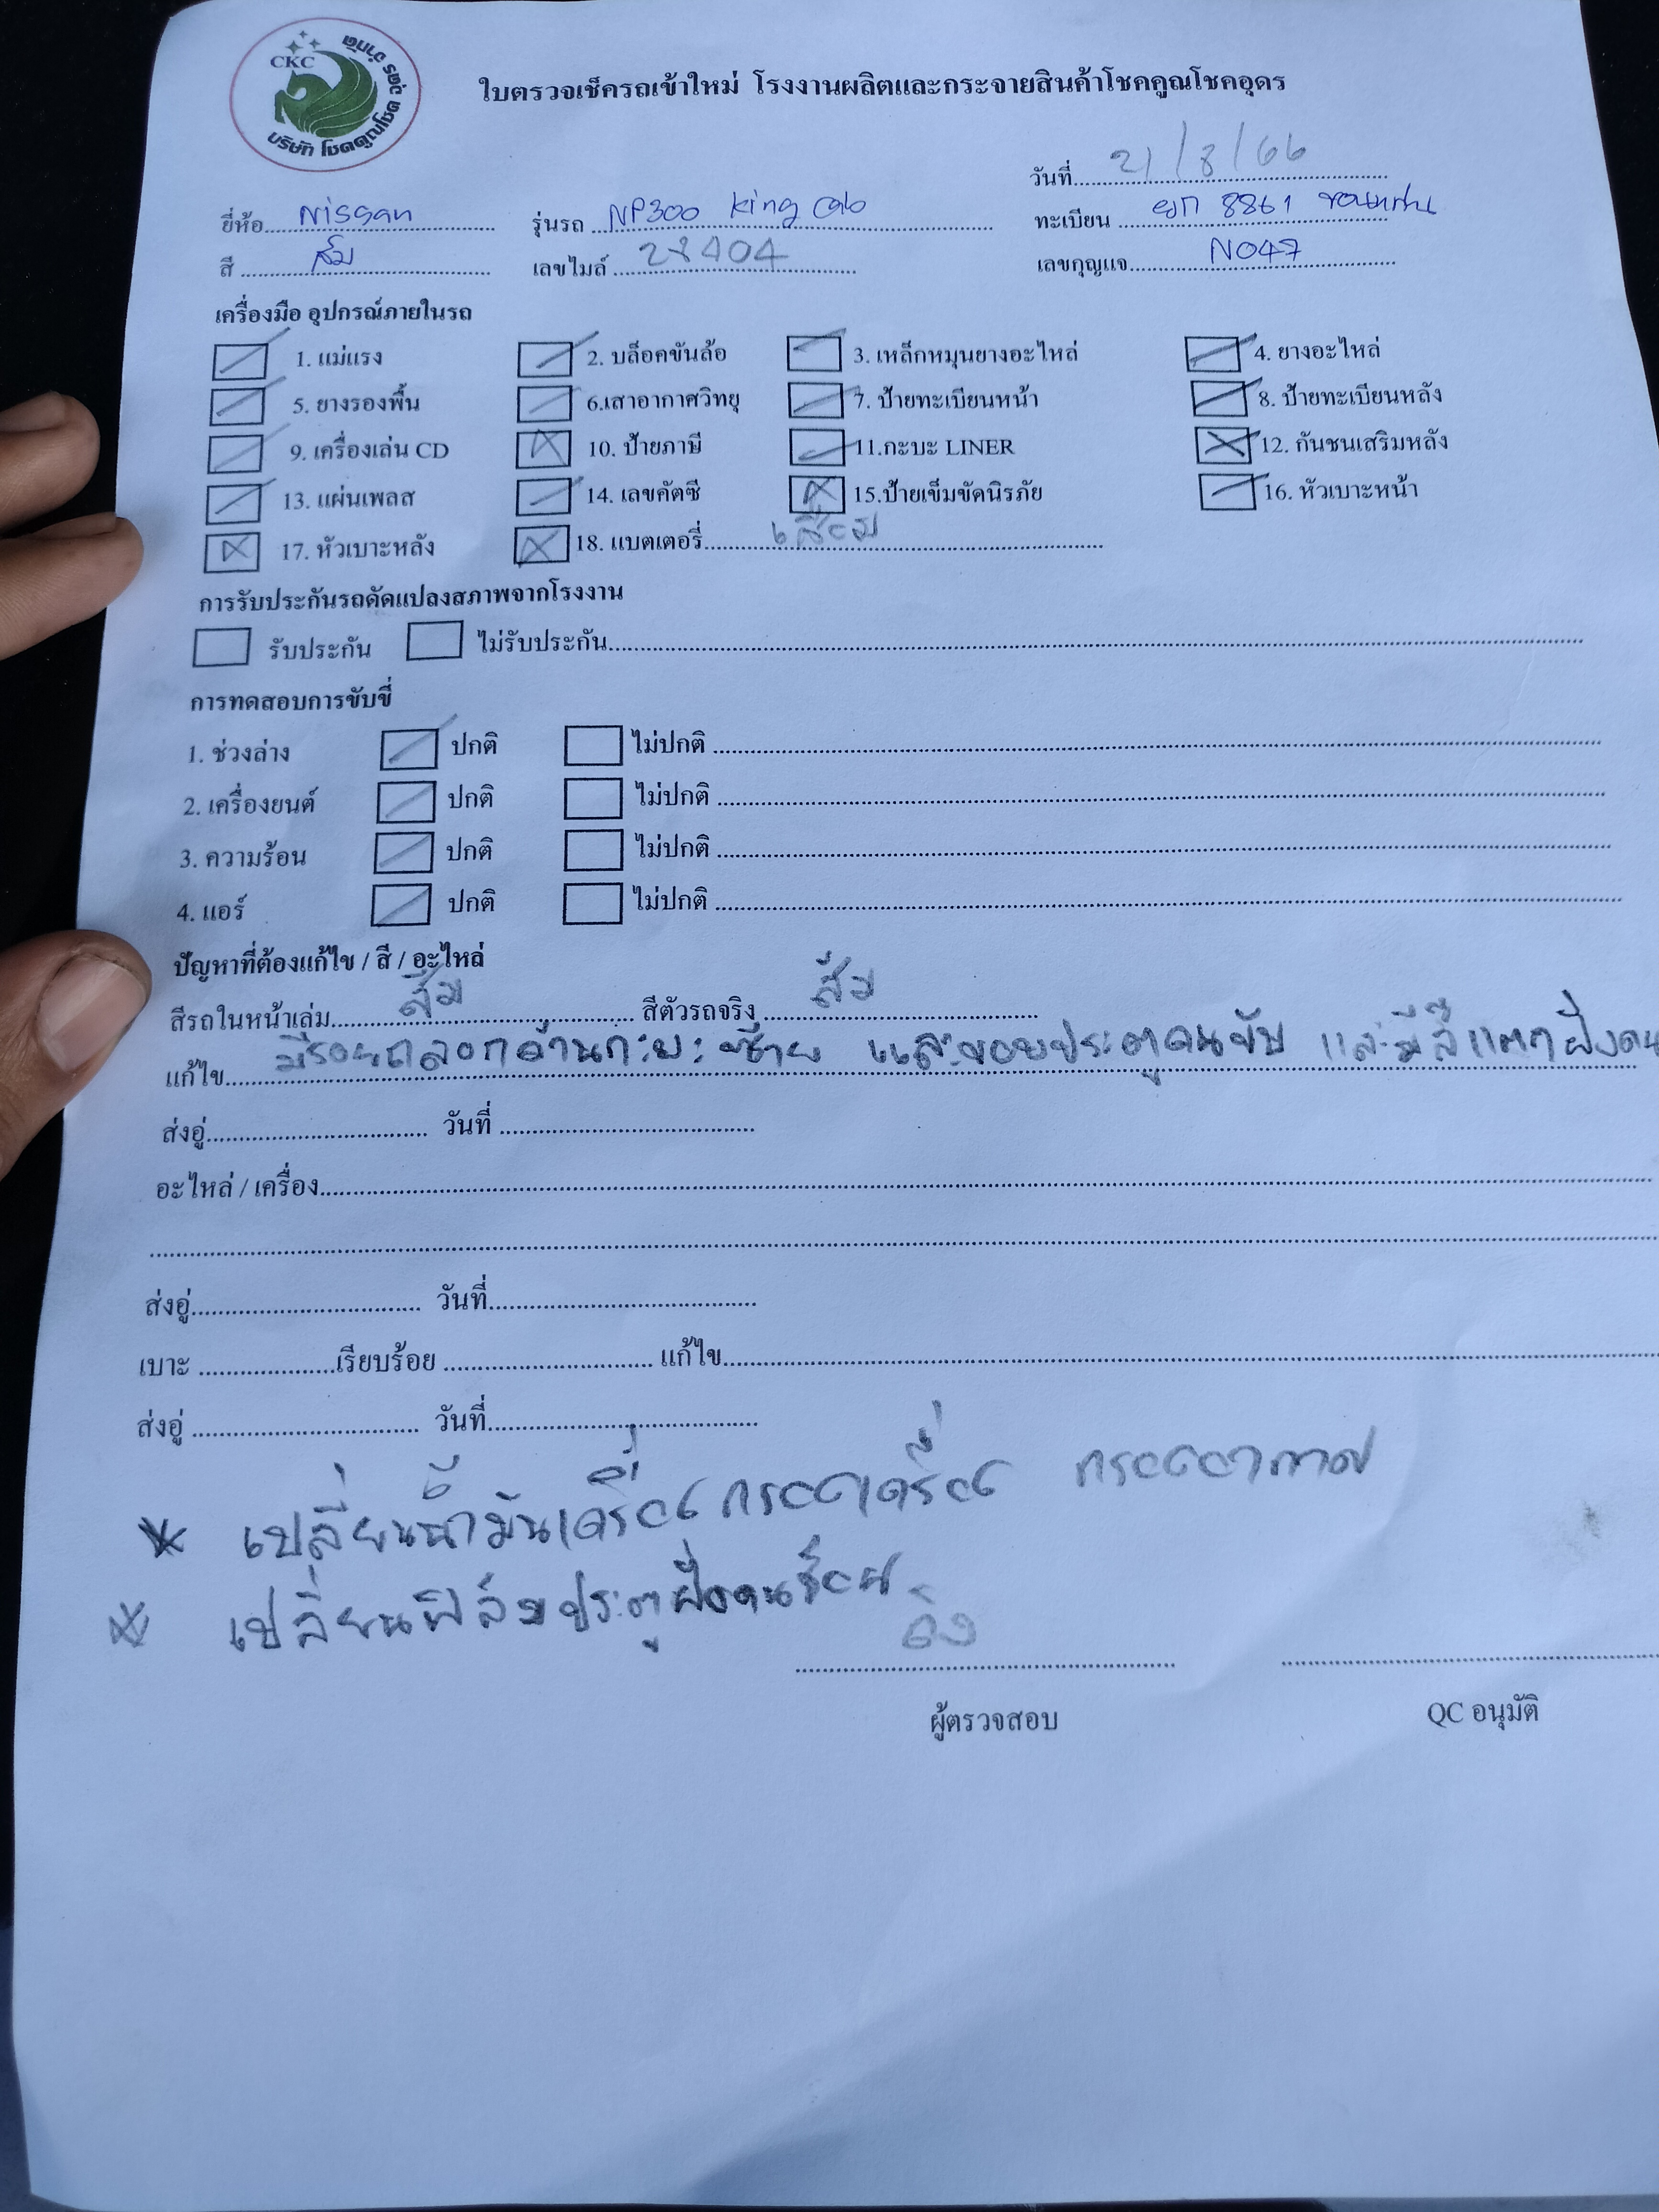 CKC
บริษัท โชคคูณโชค อุดร จำกัด
ใบตรวจเช็ครถเข้าใหม่ โรงงานผลิตและกระจายสินค้าโชคคูณโชคอุดร
วันที่ 21/8/66
ยี่ห้อ Nissan รุ่นรถ NP300 king cab ทะเบียน 8861 ขอนแก่น
สี ส้ม เลขไมล์ เลขกุญแจ N047
เครื่องมือ อุปกรณ์ภายในรถ
1. แม่แรง 2. บล็อคขันล้อ 3. เหล็กหมุนยางอะไหล่ 4. ยางอะไหล่
5. ยางรองพื้น 6.เสาอากาศวิทยุ 7. ป้ายทะเบียนหน้า 8. ป้ายทะเบียนหลัง
9. เครื่องเล่น CD 10. ป้ายภาษี 11.กะบะ LINER 12. กันชนเสริมหลัง
13. แผ่นเพลส 14. เลขคัตซี 15.ป้ายเข็มขัดนิรภัย 16. หัวเบาะหน้า
17. หัวเบาะหลัง 18. แบตเตอรี่ เสื่อม
การรับประกันรถดัดแปลงสภาพจากโรงงาน
รับประกัน ไม่รับประกัน
การทดสอบการขับขี่
1. ช่วงล่าง ปกติ ไม่ปกติ
2. เครื่องยนต์ ปกติ ไม่ปกติ
3. ความร้อน ปกติ ไม่ปกติ
4. แอร์ ปกติ ไม่ปกติ
ปัญหาที่ต้องแก้ไข / สี / อะไหล่
สีรถในหน้าเล่ม ส้ม สีตัวรถจริง ส้ม
แก้ไข มีรอยถลอกด้านกะบะซ้าย และขอบประตูคนขับ และมีสีแตกฝั่งคน
ส่งอู่ วันที่
อะไหล่ / เครื่อง
ส่งอู่ วันที่
เบาะ เรียบร้อย แก้ไข
ส่งอู่ วันที่
* เปลี่ยนน้ำมันเครื่อง กรองเครื่อง กรองอากาศ
* เปลี่ยนฟิล์มประตูฝั่งคนซ้อน
ผู้ตรวจสอบ QC อนุมัติ